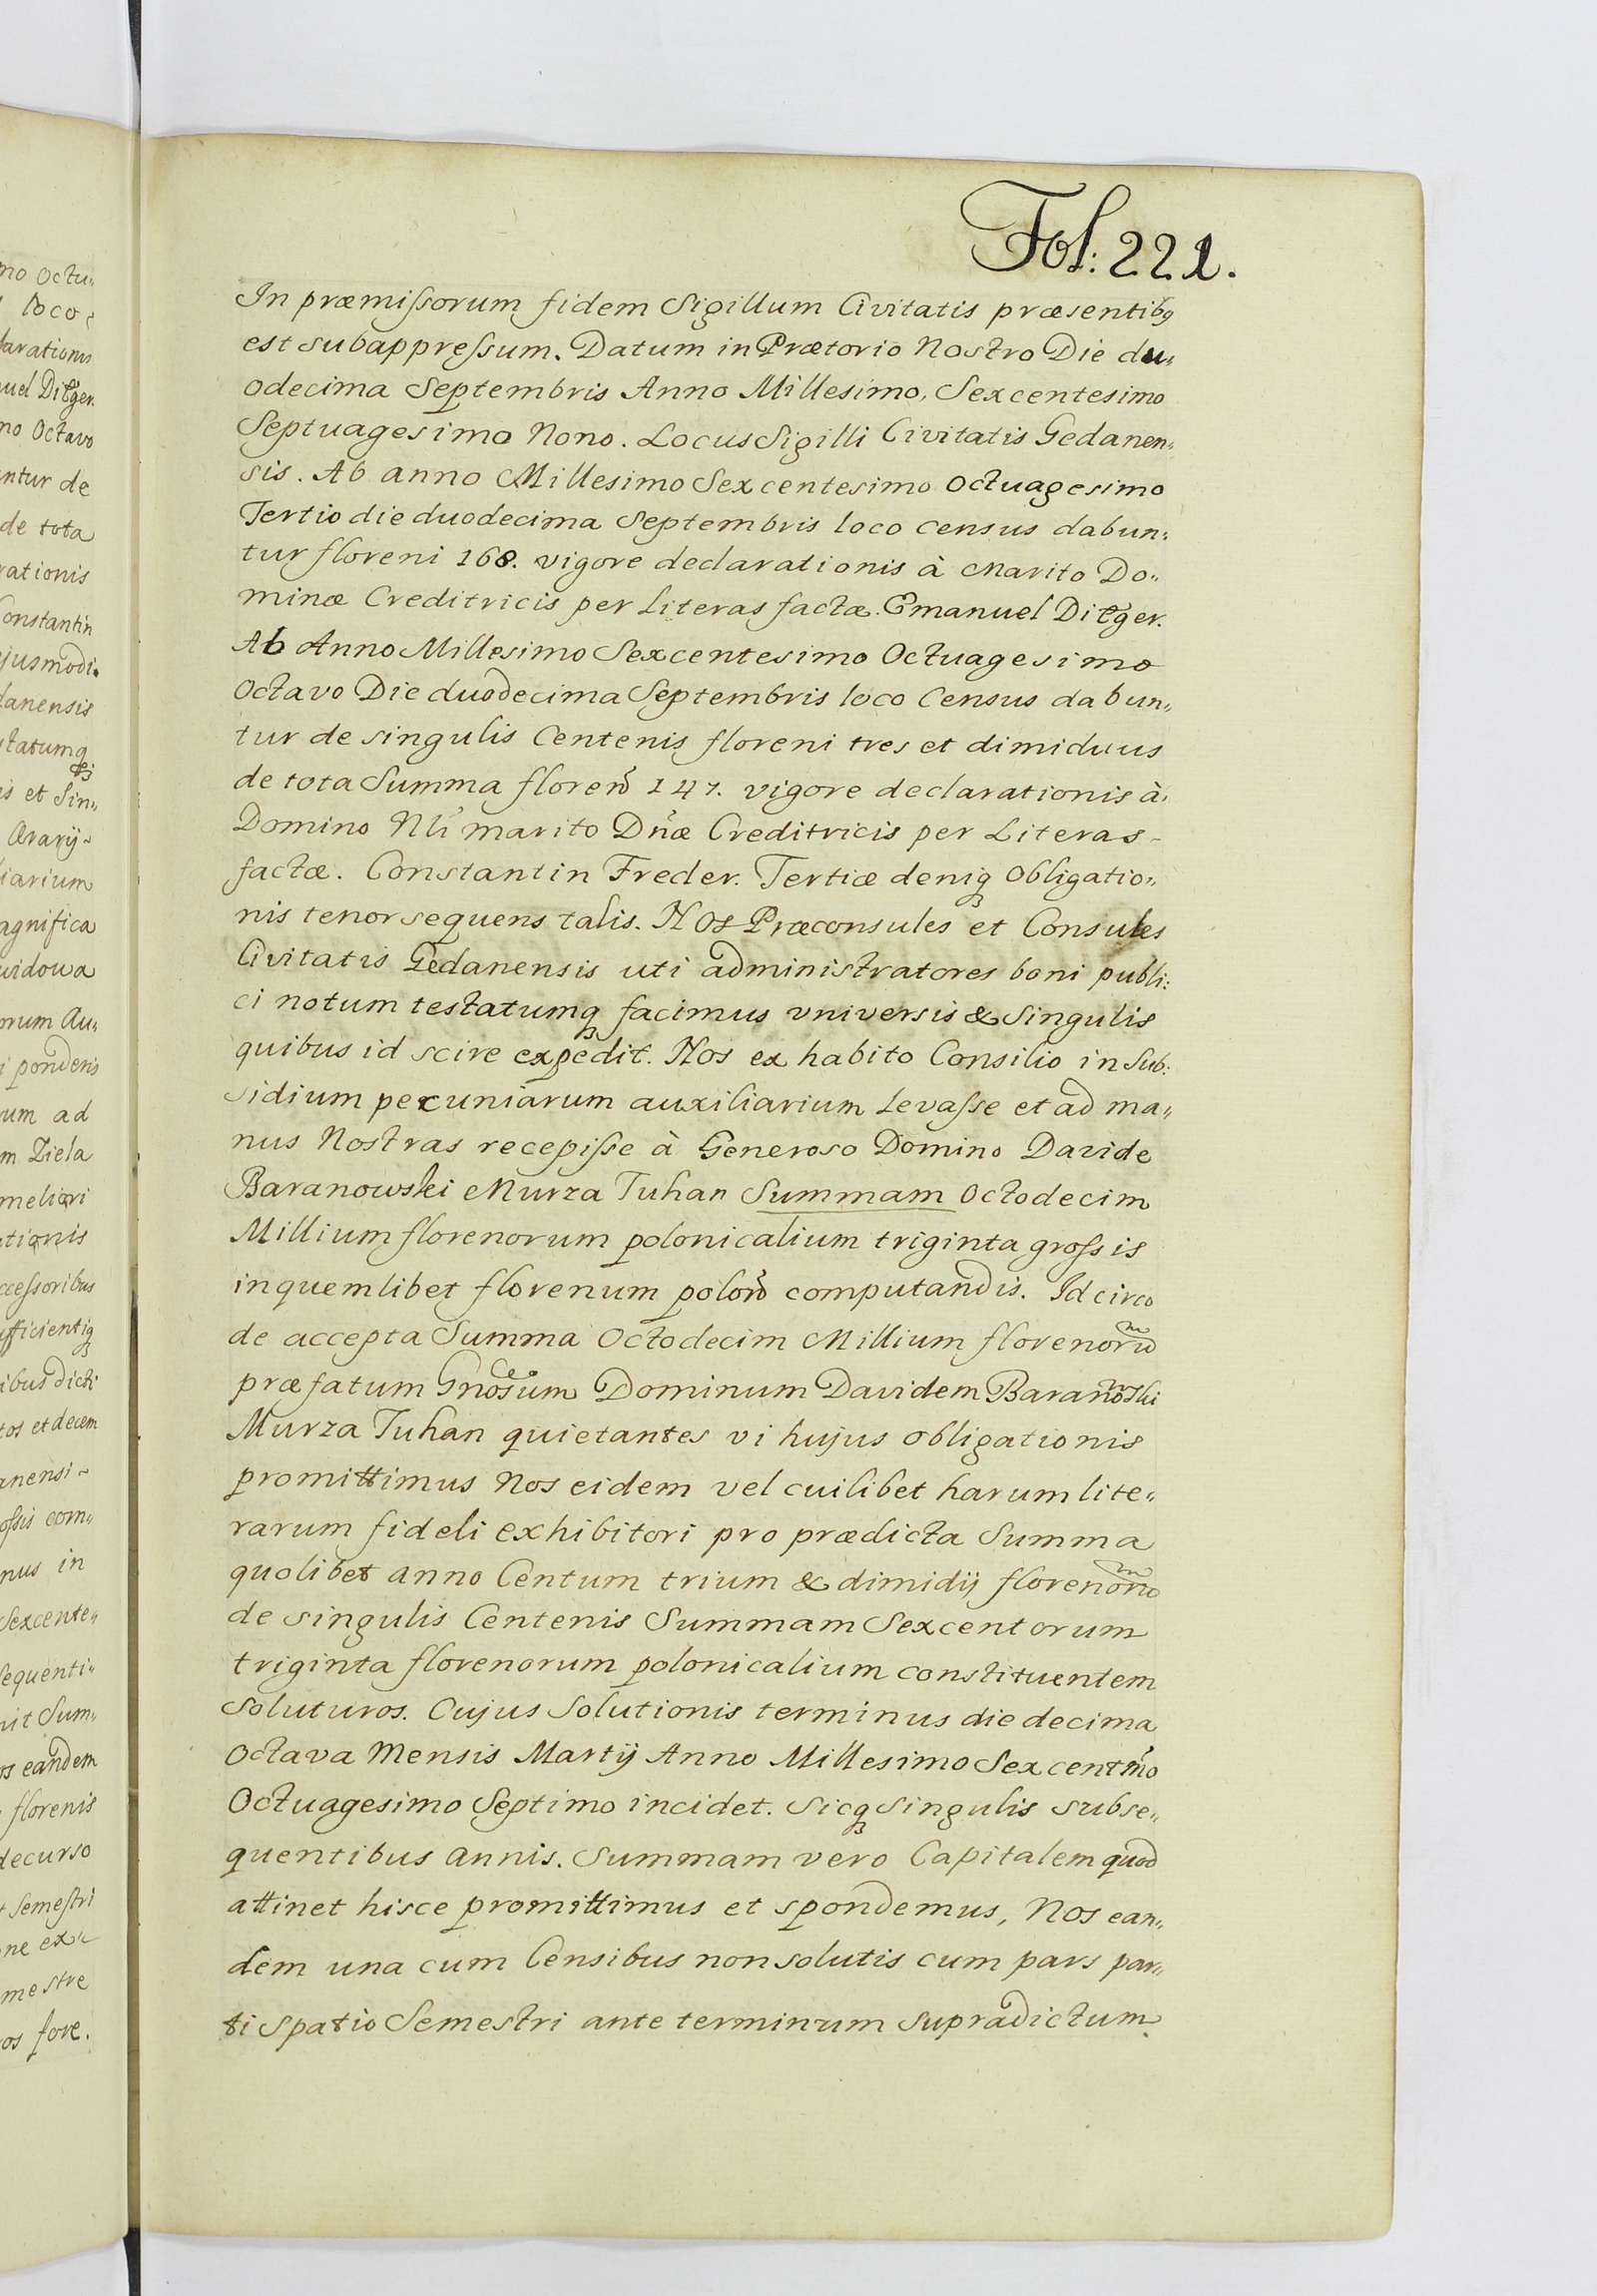 Fol: 221.
In præmiſsorum fidem Sigillum Civitatis præsentibꝰ
est subappreſsum. Datum in Prætorio Nostro Die du„
odecima Septembris Anno Millesimo, Sexcentesimo
Septuagesimo Nono. Locus Sigilli Civitatis Gedanen„
sis. Ab anno Millesimo Sexcentesimo Octuagesimo
Tertio die duodecima Septembris loco census dabun„
tur floreni 168. vigore declarationis à Marito Do„
minæ Creditricis per Literas factæ. Emanuel Ditger.
Ab Anno Millesimo Sexcentesimo Octuagesimo
Octavo Die duodecima Septembris loco Census dabun„
tur de singulis Centenis floreni tres et dimiduus
de tota Summa floreno 147. vigore declarationis à
Domino Nti marito Dnæ Creditricis per Literas
factæ. Constantin Freder. Tertiæ deniq Obligatio„
nis tenor sequens talis. Nos Præconsules et Consules
Civitatis Gedanensis uti administratores boni publi:
ci notum testatumq facimus vniversis & Singulis
quibus id scire expedit. Nos ex habito Consilio in Sub:
sidium pecuniarum auxiliarium Levaſse et ad ma„
nus Nostras recepiſse à Generoso Domino Davide
Baranowski Murza Tuhan Summam Octodecim
Millium florenorum polonicalium triginta groſsis
in quemlibet florenum polono computandis. Idcirco
de accepta Summa Octodecim Millium florenorum
præfatum Gnosum Dominum Davidem Baranoski
Murza Tuhan quietantes vi hujus obligationis
promittimus Nos eidem vel cuilibet harum lite„
rarum fideli exhibitori pro prædicta Summa
quolibet anno Centum trium & dimidij florenorum
de singulis Centenis Summam Sexcentorum
triginta florenorum polonicalium constituentem
soluturos. Cujus Solutionis terminus die decima
Octava Mensis Martij Anno Millesimo Sexcentmo
Octuagesimo Septimo incidet. Sicq singulis subse„
quentibus annis. Summam vero Capitalem quod
attinet hisce promittimus et spondemus, Nos ean„
dem una cum Censibus non solutis cum pars par„
ti spatio Semestri ante terminum supradictum